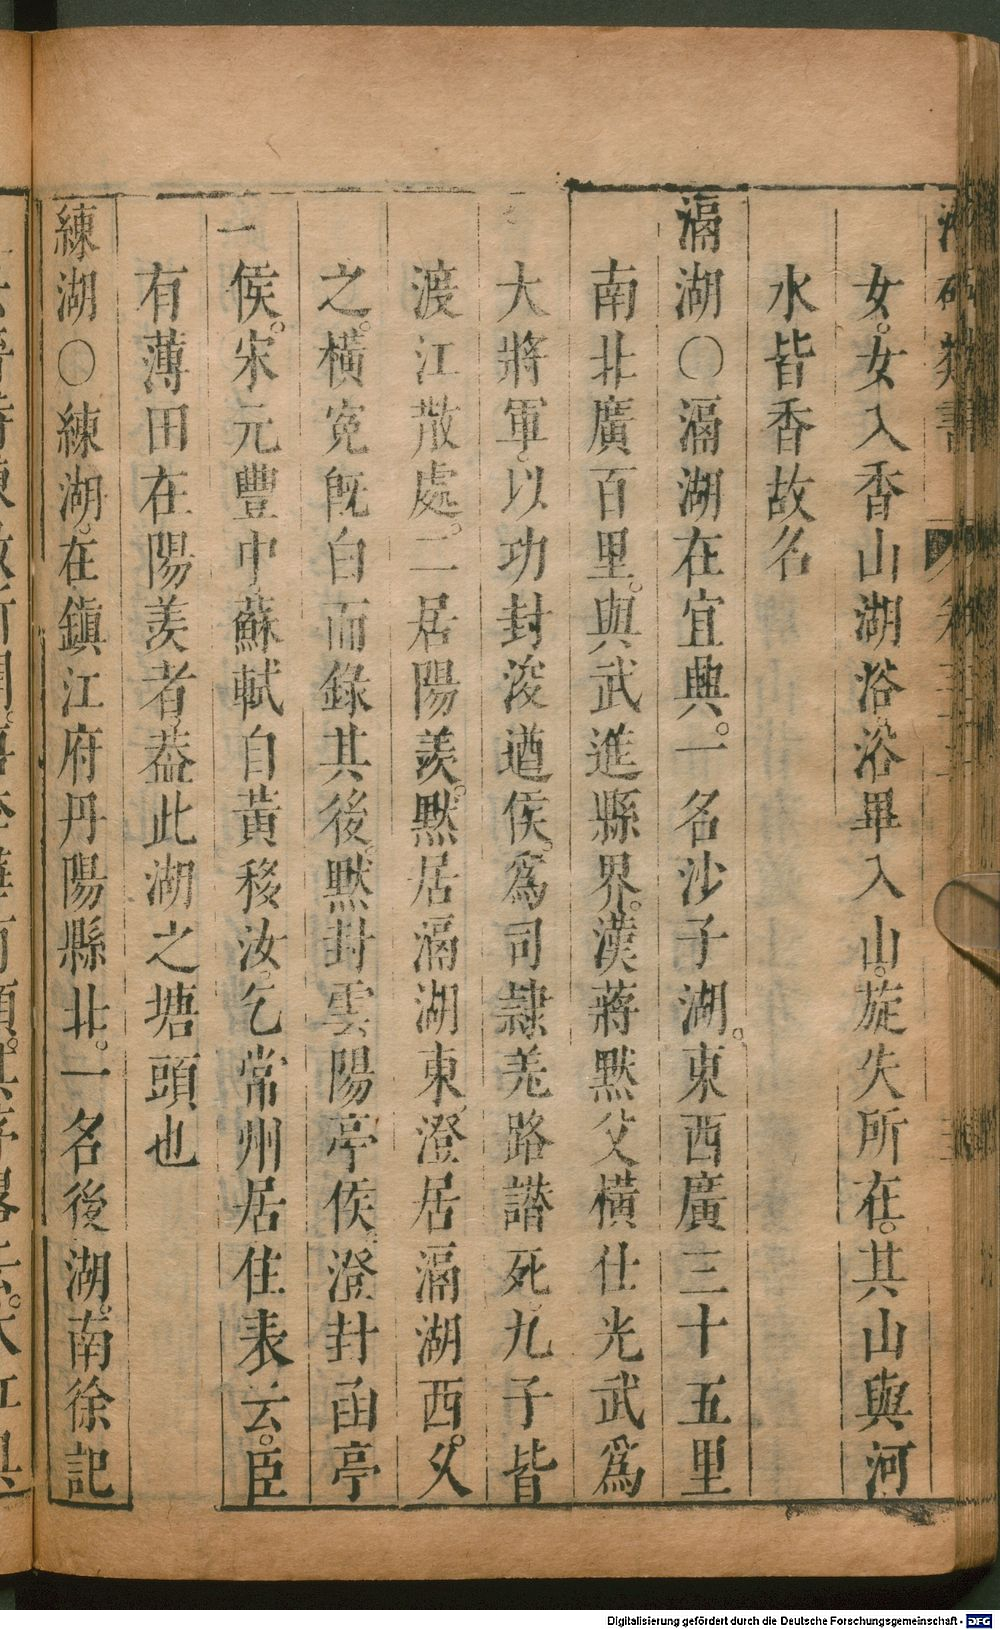 女。女入香山湖浴。浴畢入山。旋失所在。其山與河
水皆香故名
滆湖○滆湖在宜興。一名沙子湖。東西廣三十五里
南北廣百里。與武進縣界。漢蔣默父橫仕光武爲
大將軍。以功封浚遒侯。爲司隷羌路譖死。九子皆
渡江散處。二居陽羨。默居滆湖東。澄居滆湖西。父
之。橫寃旣白而錄其後。默封雲陽亭侯。澄封函亭
侯。宋元豐中。蘇軾自黃移汝。乞常州居住表云。臣
有薄田在陽羨者。葢此湖之塘頭也
練湖○練湖。在鎮江府丹陽縣北。一名後湖。南徐記
Digitalisierung gefördert durch die Deutsche Forschungsgemeinschaft - DFG